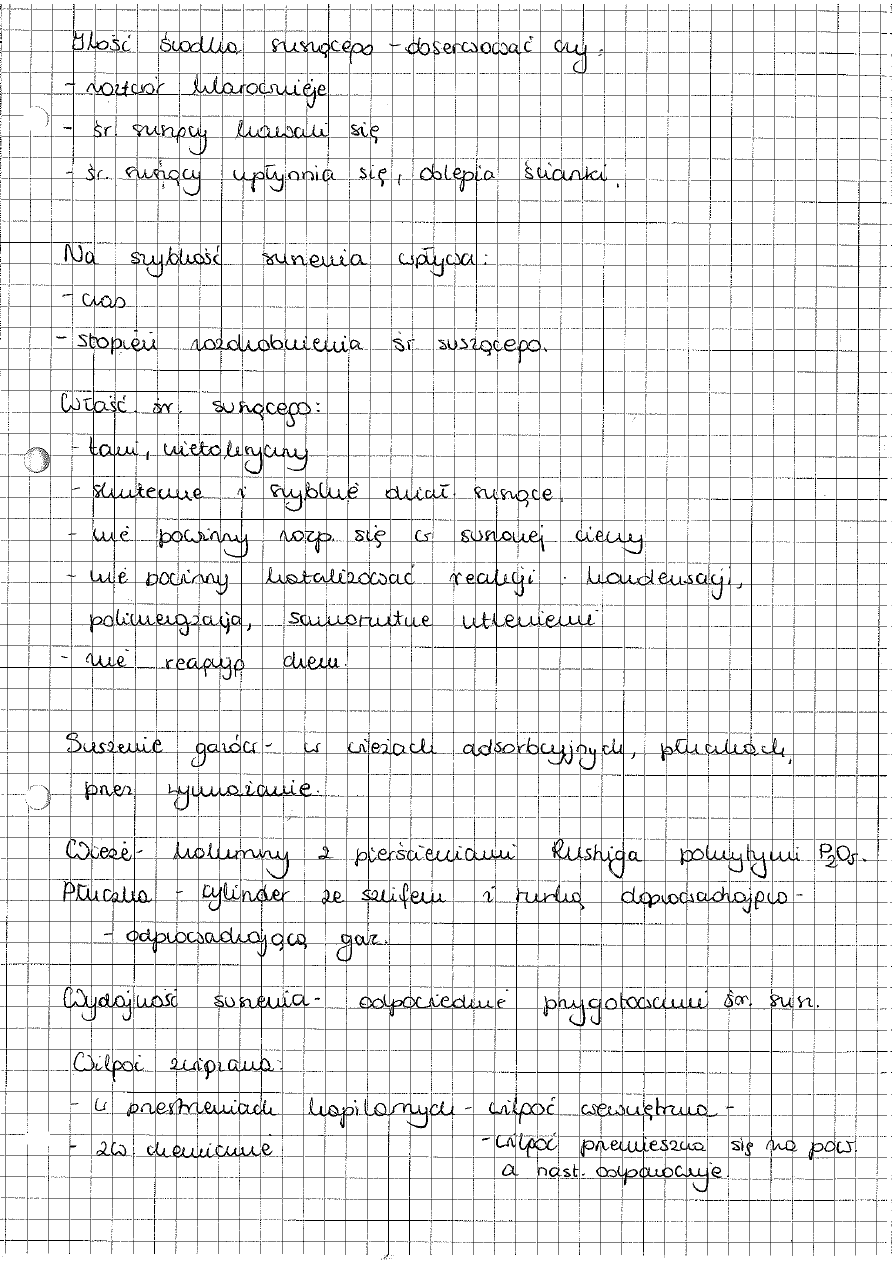 Ilość środka suszącego - obserwować czy:
- roztwór klarownieje
- śr. suszący kawali się
- śr. suszący upłynnia się, oblepia ścianki.
Na szybkość suszenia wpływa:
- czas
- stopień rozdrobnienia śr suszącego.
Właść. śr. suszącego:
- tani, nietoksyczny
- skuteczne i szybkie dział. suszące.
- nie powinny rozp. się w suszonej cieczy
- nie powinny katalizować reakcji kondensacji,
polimeryzacja, samorzutne utlenieni
- nie reagują chem.
Suszenie gazów - w wieżach adsorbcyjnych, płuczkach,
przez wymrażanie.
Wieże - kolumny z pierścieniami Rushiga pokrytymi P2O5.
Płuczka - cylinder ze szlifem i rurką doprowadzająco -
- odprowadzającą gaz.
Wydajność suszenia - odpowiednie przygotowanie śr. susz.
Wilgoć związana:
- w przestrzeniach kapilarnych - wilgoć wewnętrzna -
- zw chemicznie
- wilgoć przemieszcza się na pow.
a nast. odparowuje.